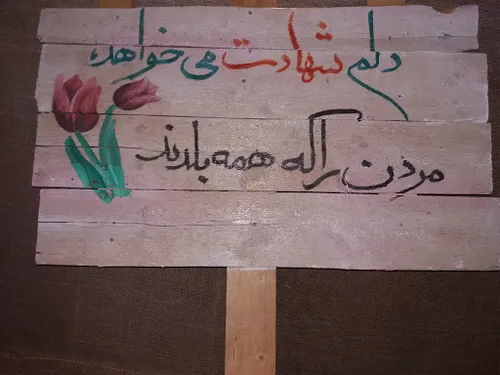 دلم شهادت می خواهد،
مردن را که همه بلدند